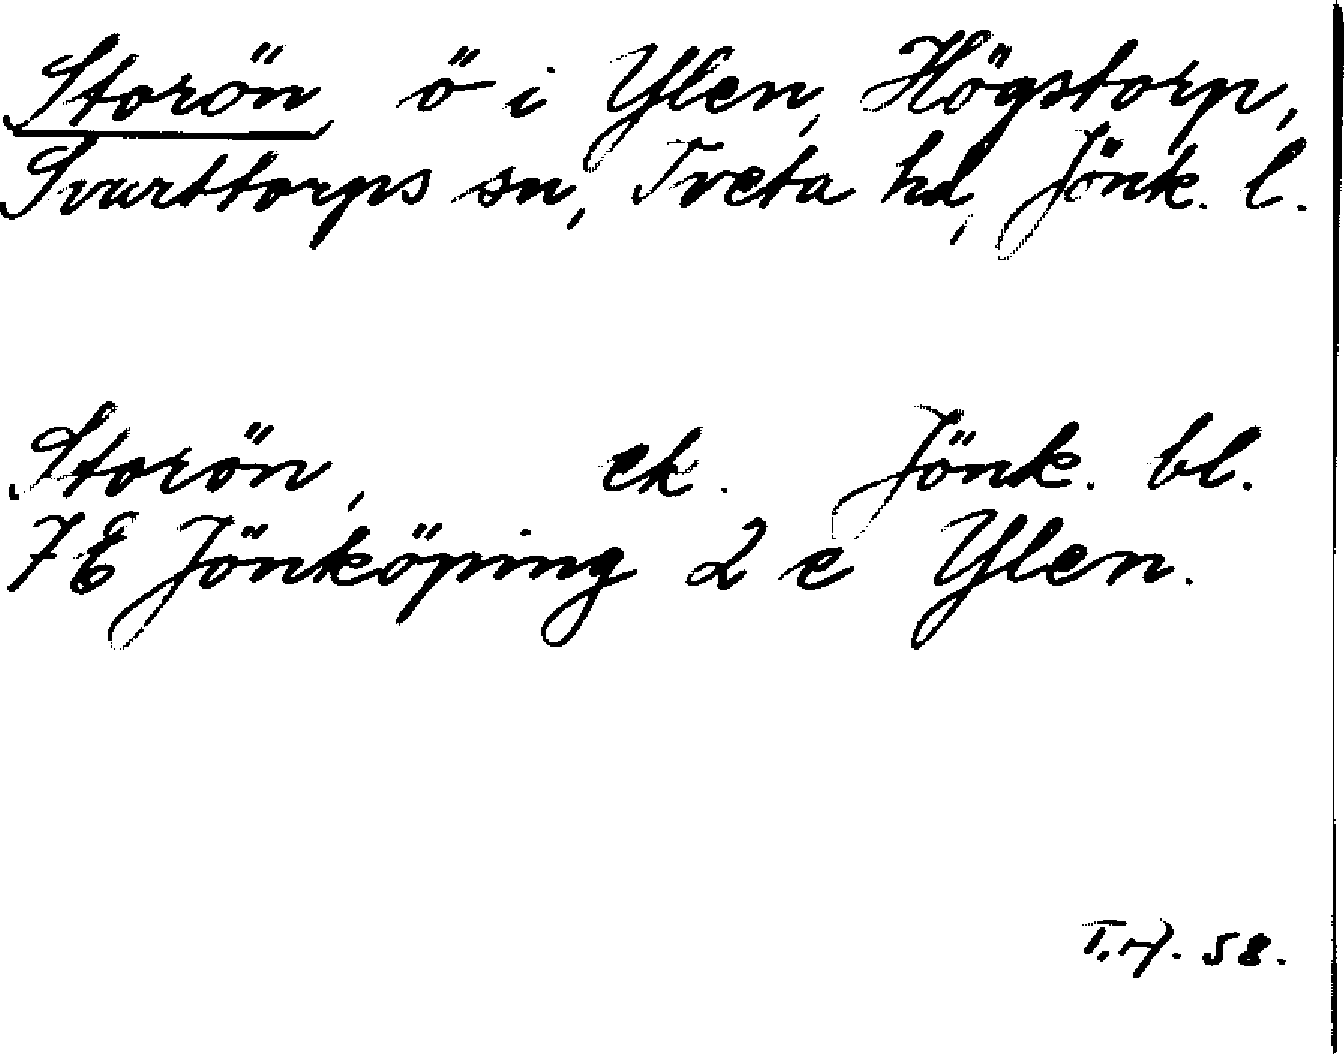 Storön, ö i Ylen, Högstorp,
Svarttorps sn, Tveta hd, Jönk. l.
Storön, ek. Jönk. bl.
7E Jönköping 2 e Ylen.
58.